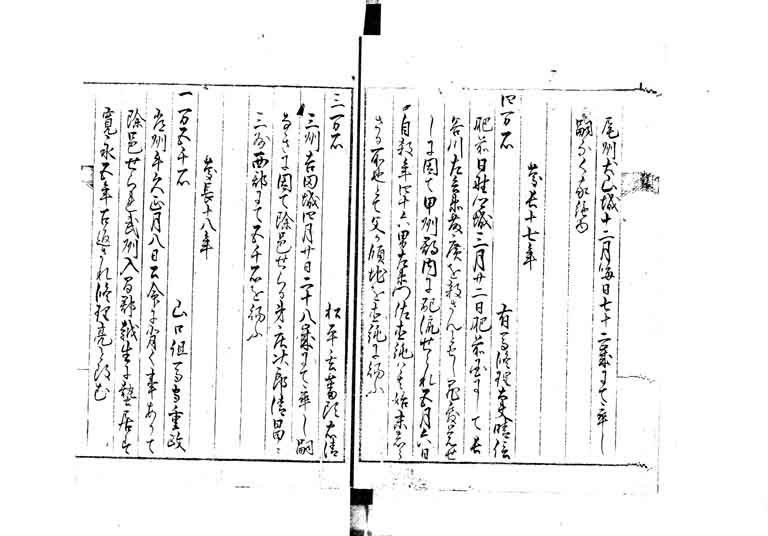 尾州犬山城十二月晦日七十二歳にて卒し
嗣なく家絶る
慶長十七年
四万石 有馬修理大夫晴信
肥前日野江城三月廿二日肥前国にして長
谷川左兵衛藤広を殺さんとせし罪露顕せ
しに因て甲州郡内に配流せられ五月六日
自殺年四十六男左衛門佐直純は其始末
さる所也とて父の領地を直純に賜ふ
三万石 松平玄蕃頭忠清
三州吉田城四月廿日二十八歳にて卒し嗣
なきに因て除邑せらる弟庄次郎清昌に
三州西郡にて五千石を賜ふ
慶長十八年
一万五千石 山口但馬守重政
常州牛久正月八日公命に背く事ありて
除邑せられ武州入間郡越生に蟄居す
寛永五年召返され修理亮と改む